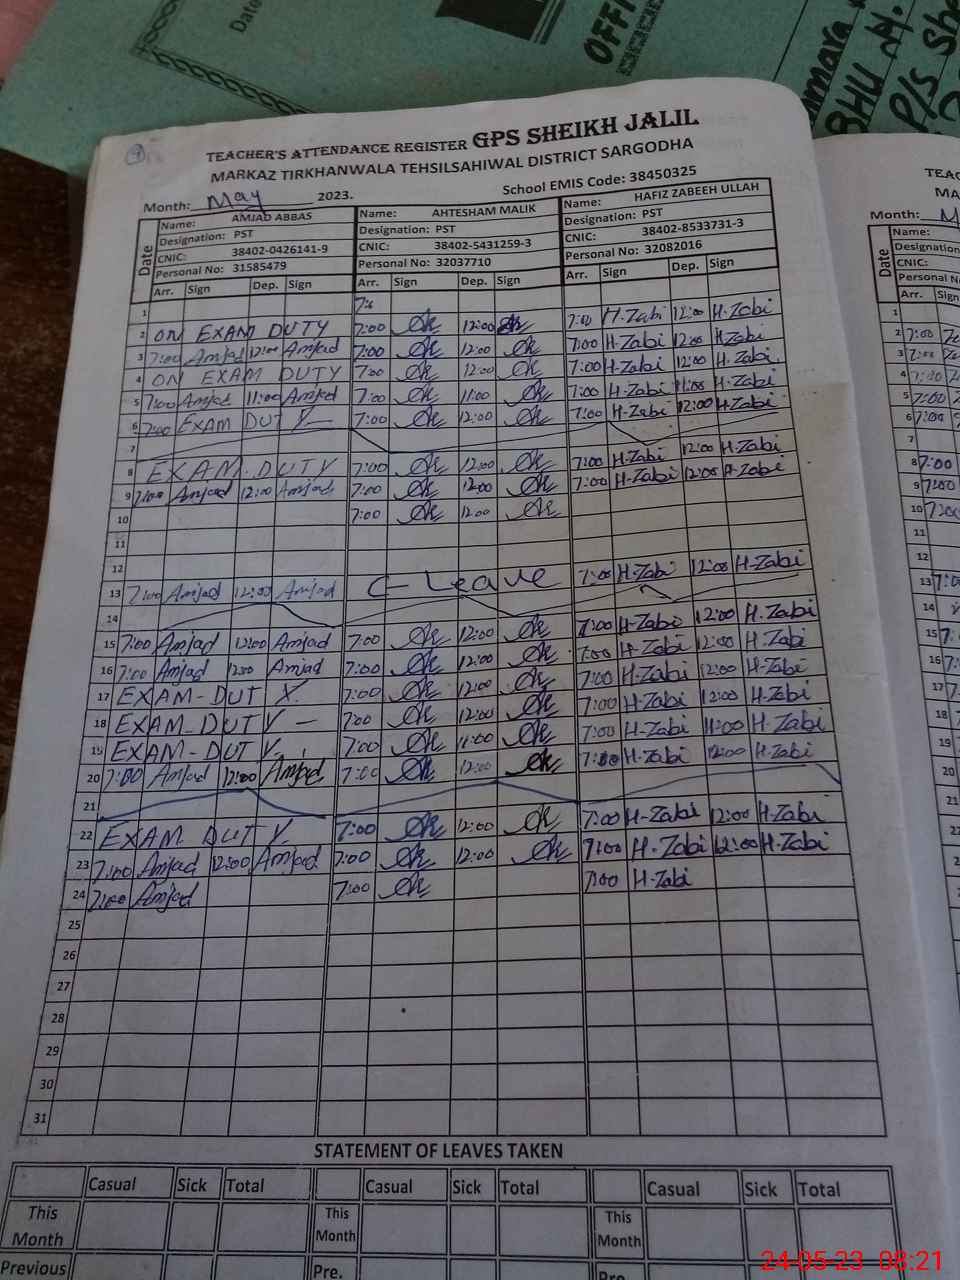 Date
OFFI
mara
BHU
P/S She
TEACHER'S ATTENDANCE REGISTER GPS SHEIKH JALIL
MARKAZ TIRKHANWALA TEHSILSAHIWAL DISTRICT SARGODHA
Month: May 2023. School EMIS Code: 38450325
Date Name: AMJAD ABBAS Name: AHTESHAM MALIK Name: HAFIZ ZABEEH ULLAH
Designation: PST Designation: PST Designation: PST
CNIC: 38402-0426141-9 CNIC: 38402-5431259-3 CNIC: 38402-8533731-3
Personal No: 31585479 Personal No: 32037710 Personal No: 32082016
Arr. Sign Dep. Sign Arr. Sign Dep. Sign Arr. Sign Dep. Sign
1
2 ON EXAM DUTY 7:00 12:00 7:00 H.Zabi 12:00 H.Zabi
3 7:00 Amjad 12:00 Amjad 7:00 12:00 7:00 H.Zabi 12:00 H.Zabi
4 ON EXAM DUTY 7:00 12:00 7:00 H.Zabi 12:00 H.Zabi
5 7:00 Amjad 11:00 Amjad 7:00 11:00 7:00 H.Zabi 11:00 H.Zabi
6 7:00 EXAM DUTY 7:00 12:00 7:00 H-Zabi 12:00 H-Zabi
7
8 EXAM-DUTY 7:00 12:00 7:00 H-Zabi 12:00 H-Zabi
9 7:00 Amjad 12:00 Amjad 7:00 12:00 7:00 H-Zabi 12:00 H-Zabi
10 7:00 12:00
11
12
13 7:00 Amjad 12:00 Amjad C-Leave 7:00 H-Zabi 12:00 H-Zabi
14
15 7:00 Amjad 12:00 Amjad 7:00 12:00 7:00 H-Zabi 12:00 H.Zabi
16 7:00 Amjad 1200 Amjad 7:00 12:00 7:00 H-Zabi 12:00 H-Zabi
17 EXAM-DUTY 7:00 12:00 7:00 H-Zabi 12:00 H-Zabi
18 EXAM-DUTY 7:00 12:00 7:00 H-Zabi 12:00 H-Zabi
19 EXAM-DUTY 7:00 11:00 7:00 H-Zabi 11:00 H-Zabi
20 7:00 Amjad 12:00 Amjad 7:00 12:00 7:00 H-Zabi 12:00 H-Zabi
21
22 EXAM DUTY 7:00 12:00 7:00 H-Zabi 12:00 H-Zabi
23 7:00 Amjad 12:00 Amjad 7:00 12:00 7:00 H-Zabi 12:00 H-Zabi
24 7:00 Amjad 7:00 7:00 H-Zabi
25
26
27
28
29
30
31
STATEMENT OF LEAVES TAKEN
Casual Sick Total Casual Sick Total Casual Sick Total
This Month This Month This Month
Previous Pre. Pre
TEAC
MA
Month: M
Date Name:
Designation
CNIC:
Personal N
Arr. Sign
1
2 7:00
3 7:00
4 7:00
5 7:00
6 7:00
7
8 7:00
9 7:00
10 7:00
11
12
13 7:0
14
15 7:
16 7:
17 7
18 7
19
20
21
22
23
24
25
26
24-05-23 08:21